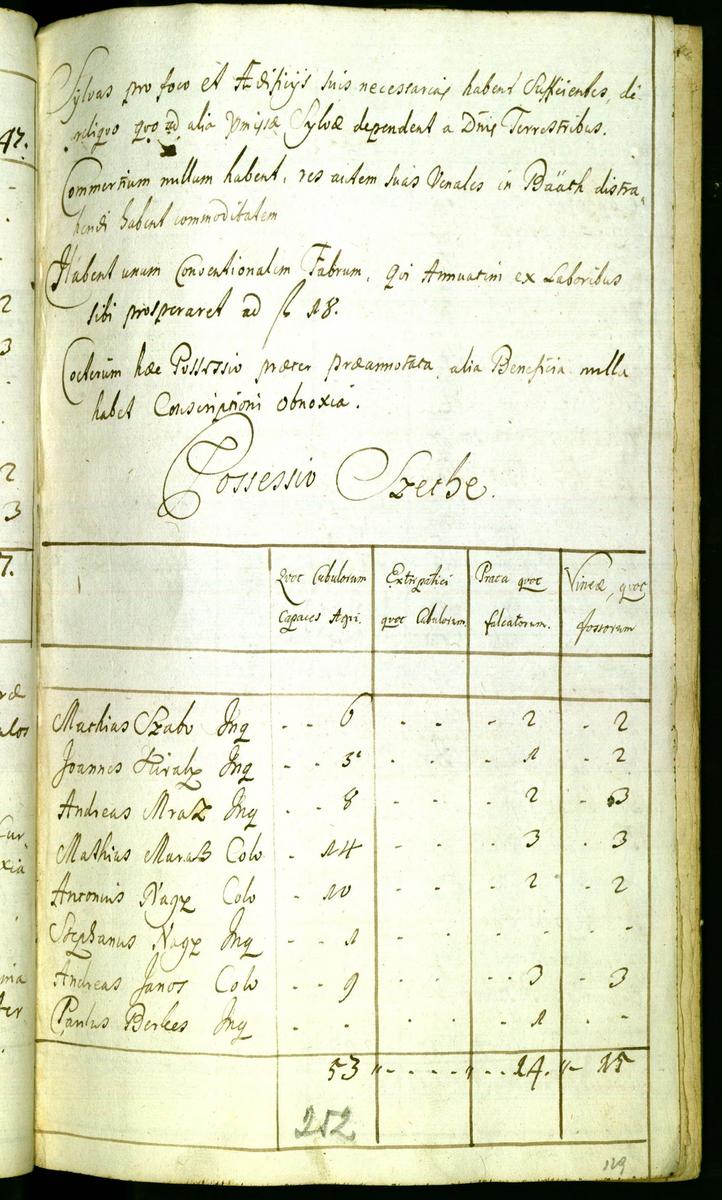 Sylvas pro foco et Ædificijs suis necessarias habent Sufficientes, de
reliquo quo ad alia Omissæ Sylvæ dependent a Dnis Terrestribus.
Commertium nullum habent, res autem suas Venales in Bááth distra-
hendi habent commoditatem
Habent unum Conventionalem Fabrum, qui Annuatim ex Laboribus
sibi prosperaret ad f 18.
Cœterum hæc Possessio præter præannotata alia Beneficia nulla
habet Conscriptioni obnoxia.
Possessio Szethe.
Quot Cubulorum Capaces Agri. Extirpatici quot Cubulorum. Prata quot falcatorum. Vineæ, quot fossorum
Mathias Szabo Inq - - 6 - - - 2 - 2
Joannes Kiraly Inq - - 5 - - - 1 - 2
Andreas Mraz Inq - - 8 - - - 2 - 3
Mathias Maraß Colo - 14 - - - 3 - 3
Antonius Nagy Colo - 10 - - - 2 - 2
Stephanus Nagy Inq - - 1 - - - - - -
Andreas Janos Colo - - 9 - - - 3 - 3
Paulus Berkes Inq - - - - - 1 - -
53 " - - - - " - - 14. " - 15
252
129